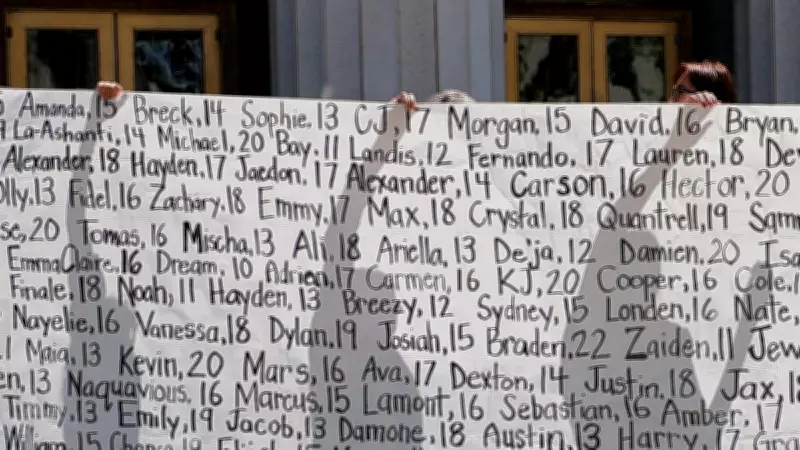 Amanda, 15 Breck, 14 Sophie, 13 CJ, 17 Morgan, 15 David, 16 Bryan,
La-Ashanti, 14 Michael, 20 Bay, 11 Landis, 12 Fernando, 17 Lauren, 18
Alexander, 18 Hayden, 17 Jaedon, 17 Alexander, 14 Carson, 16 Hector, 20
13 Fidel, 16 Zachary, 18 Emmy, 17 Max, 18 Crystal, 18 Quantrell, 19
20 Tomas, 16 Mischa, 13 Ali, 18 Ariella, 13 De'ja, 12 Damien, 20
EmmaClaire, 16 Dream, 10 Adrien, 17 Carmen, 16 KJ, 20 Cooper, 16 Cole,
Finale, 18 Noah, 11 Hayden, 13 Breezy, 12 Sydney, 15 Londen, 16 Nate,
Nayelie, 16 Vanessa, 18 Dylan, 19 Josiah, 15 Braden, 22 Zaiden, 11
Maia, 13 Kevin, 20 Mars, 16 Ava, 17 Dexton, 14 Justin, 18 Jax,
13 Naquavious, 16 Marcus, 15 Lamont, 16 Sebastian, 16 Amber, 17
Timmy, 13 Emily, 19 Jacob, 13 Damone, 18 Austin, 13 Harry, 17
William, 15